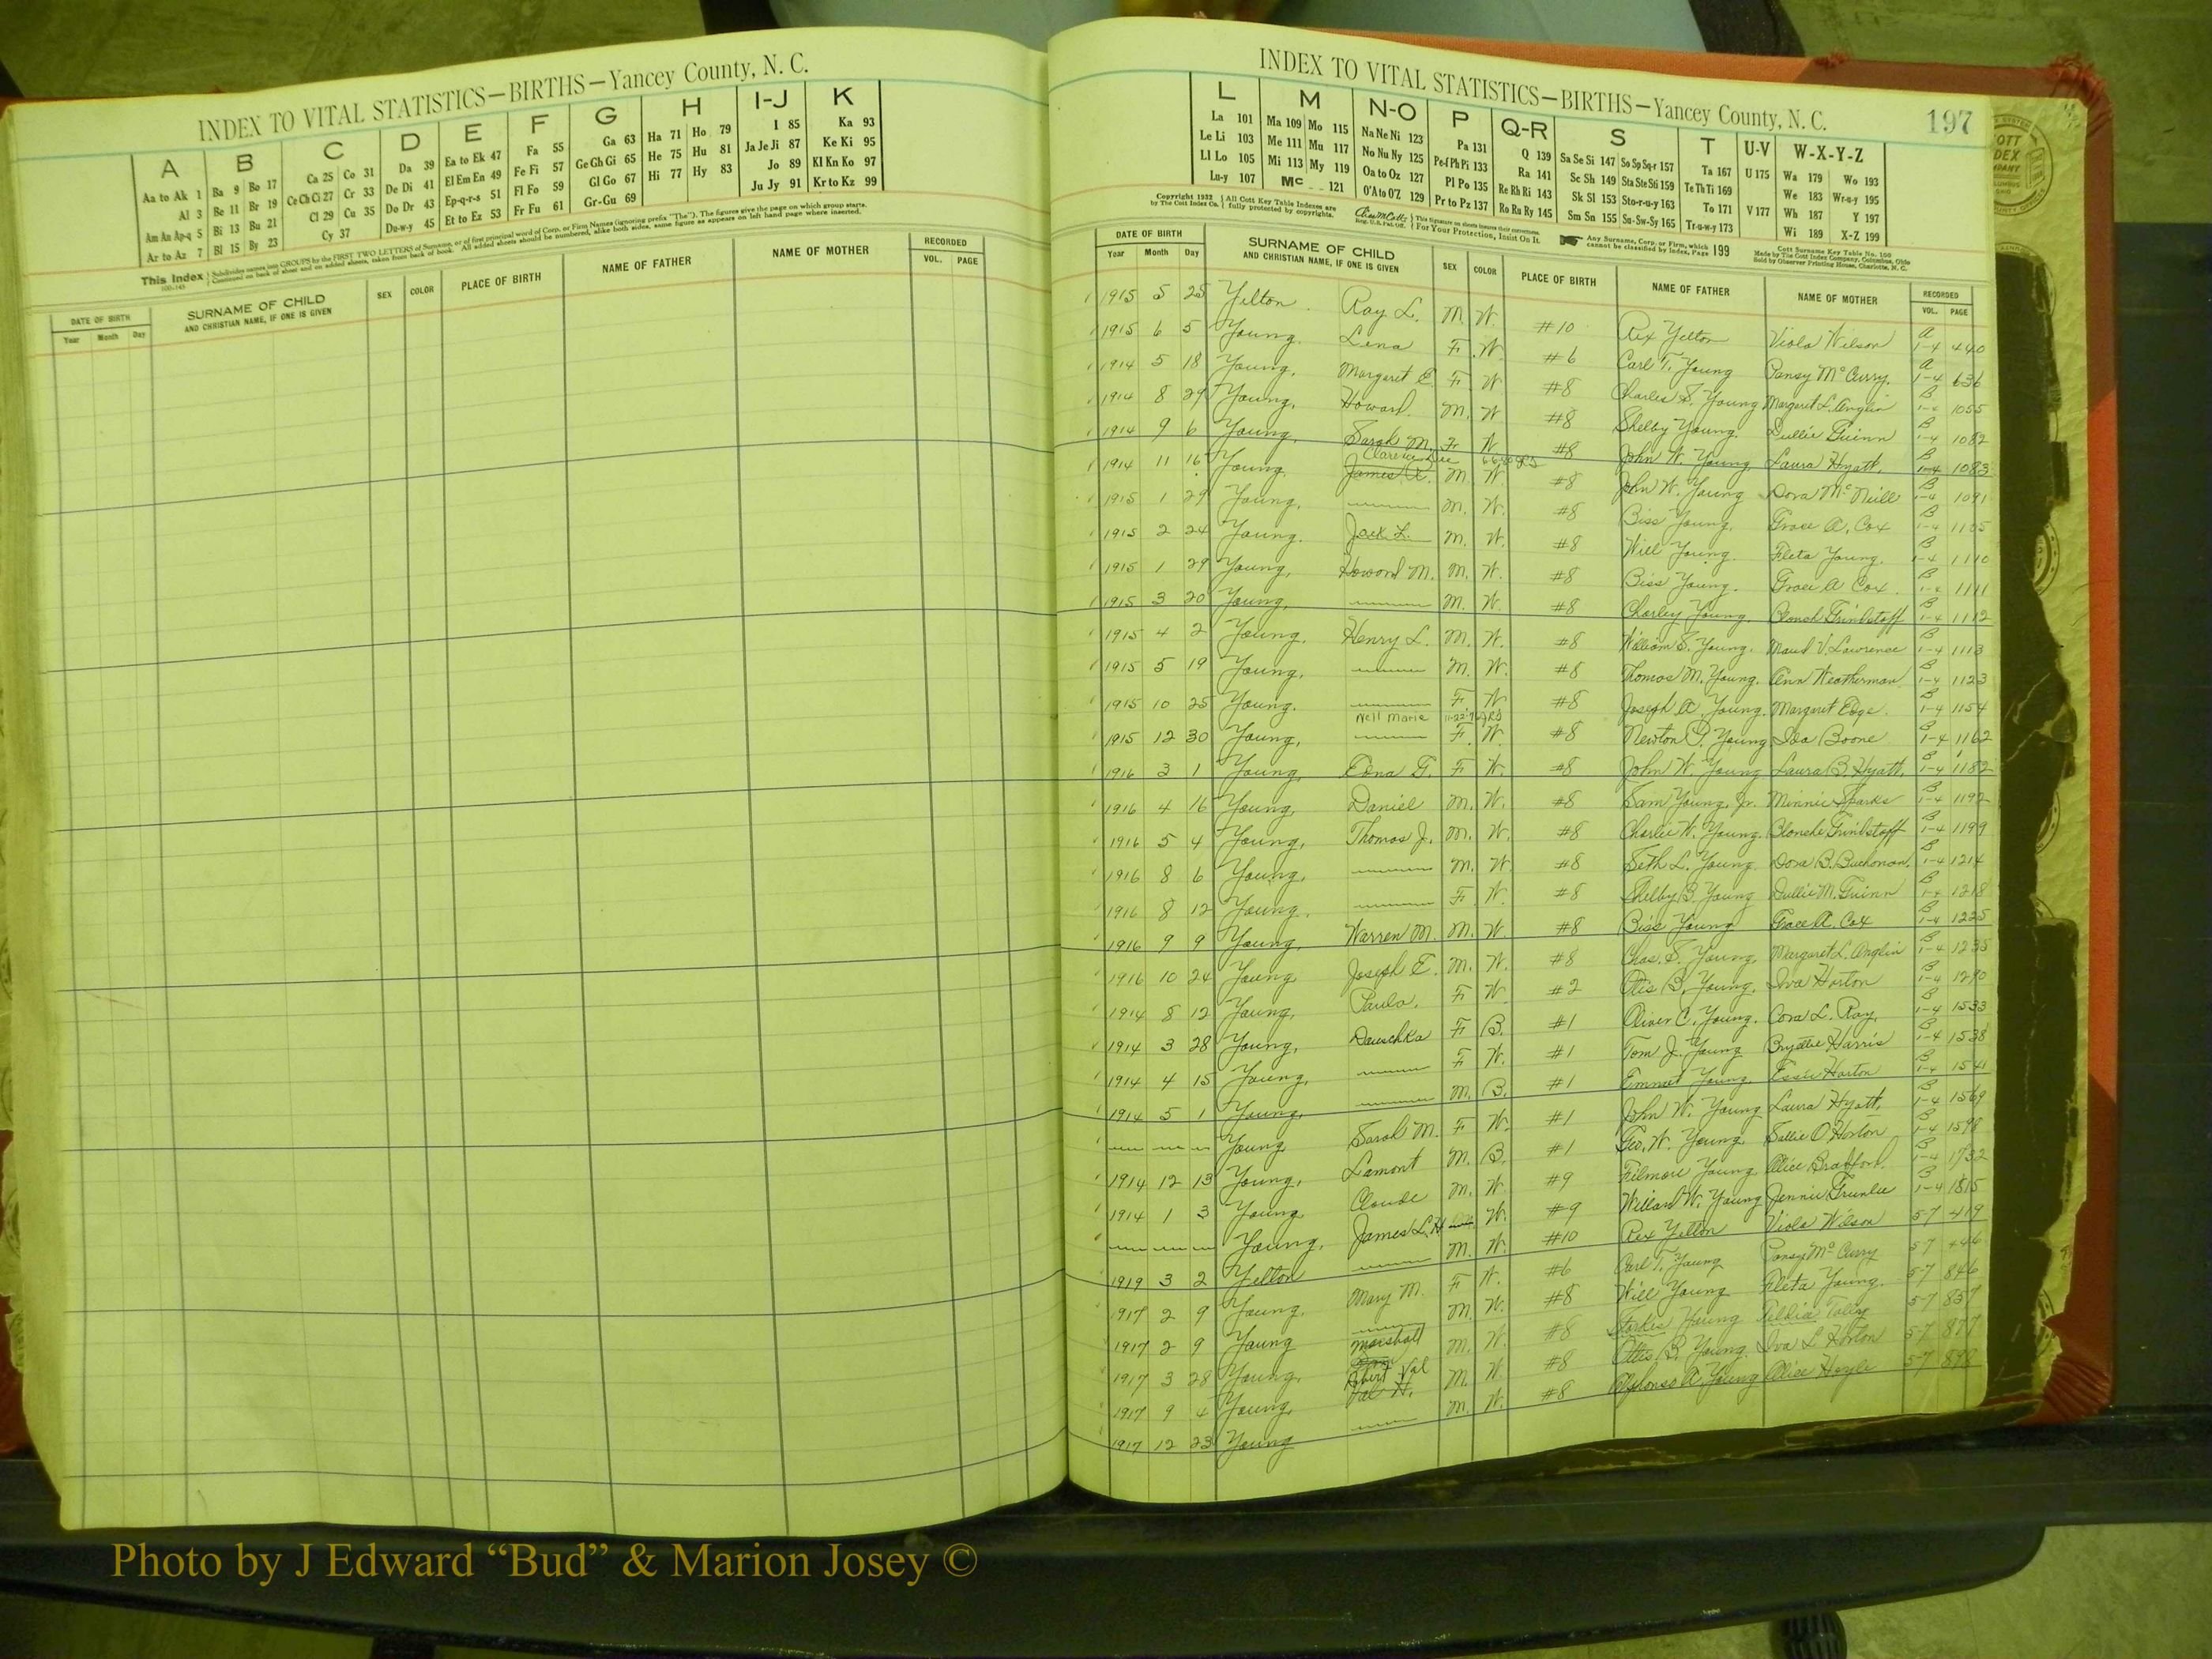 INDEX TO VITAL STATISTICS—BIRTHS—Yancey County, N. C.
A B C D E F G H I-J K
Aa to Ak 1 Ba 9 Bo 17 Ca 25 Co 31 Da 39 Ea to Ek 47 Fa 55 Ga 63 Ha 71 Ho 79 I 85 Ka 93
Al 3 Be 11 Br 19 Ce Ch Ci 27 Cr 33 De Di 41 El Em En 49 Fe Fi 57 Ge Gh Gi 65 He 75 Hu 81 Ja Je Ji 87 Ke Ki 95
Am An Ap-q 5 Bi 13 Bu 21 Cl 29 Cu 35 Do Dr 43 Ep-q-r-s 51 Fl Fo 59 Gl Go 67 Hi 77 Hy 83 Jo 89 Kl Kn Ko 97
Ar to Az 7 Bl 15 By 23 Cy 37 Du-w-y 45 Et to Ez 53 Fr Fu 61 Gr-Gu 69 Ju Jy 91 Kr to Kz 99
This Index Subdivides names into GROUPS by the FIRST TWO LETTERS of Surname, or of first principal word of Corp. or Firm Names (ignoring prefix "The"). The figures give the page on which group starts.
Continued on back of sheet and on added sheets, taken from back of book. All added sheets should be numbered, alike both sides, same figure as appears on left hand page where inserted.
DATE OF BIRTH SURNAME OF CHILD SEX COLOR PLACE OF BIRTH NAME OF FATHER NAME OF MOTHER RECORDED
Year Month Day AND CHRISTIAN NAME, IF ONE IS GIVEN VOL. PAGE
INDEX TO VITAL STATISTICS—BIRTHS—Yancey County, N. C. 197
L M N-O P Q-R S T U-V W-X-Y-Z
La 101 Ma 109 Mo 115 Na Ne Ni 123 Pa 131 Q 139 Sa Se Si 147 So Sp Sq-r 157 Ta 167 U 175 Wa 179 Wo 193
Le Li 103 Me 111 Mu 117 No Nu Ny 125 Pe-f Ph Pi 133 Ra 141 Sc Sh 149 Sta Ste Sti 159 Te Th Ti 169 We 183 Wr-u-y 195
Ll Lo 105 Mi 113 My 119 Oa to Oz 127 Pl Po 135 Re Rh Ri 143 Sk Sl 153 Sto-r-u-y 163 To 171 V 177 Wh 187 Y 197
Lu-y 107 Mc 121 O'A to O'Z 129 Pr to Pz 137 Ro Ru Ry 145 Sm Sn 155 Su-Sw-Sy 165 Tr-u-w-y 173 Wi 189 X-Z 199
Copyright 1932 by The Cott Index Co. All Cott Key Table Indexes are fully protected by copyrights. This signature on sheets insures their correctness. For Your Protection, Insist On It. Any Surname, Corp. or Firm, which cannot be classified by Index, Page 199
Cott Surname Key Table No. 100 Made by The Cott Index Company, Columbus, Ohio Sold by Observer Printing House, Charlotte, N. C.
DATE OF BIRTH SURNAME OF CHILD SEX COLOR PLACE OF BIRTH NAME OF FATHER NAME OF MOTHER RECORDED
Year Month Day AND CHRISTIAN NAME, IF ONE IS GIVEN VOL. PAGE
1915 5 25 Yelton Ray L. M. W. #10 Rex Yelton Viola Wilson A 1-4 440
1915 6 5 Young. Lena F. W. #6 Carl T. Young Pansy McCurry. A 1-4 636
1914 5 18 Young, Margaret E. F. W. #8 Charles S. Young Margaret L. Anglin B 1-4 1055
1914 8 29 Young, Howard. M. W #8 Shelby Young. Dullie Guinn B 1-4 1082
1914 9 6 Young, Sarah M. F. W #8 John W. Young, Laura Hyatt. B 1-4 1083
Clarence Lee
1914 11 16 Young James A. M. W. #8 John W. Young Dora McNeill B 1-4 1091
1915 1 29 Young, M. W. #8 Biss Young. Grace A. Cox B 1-4 1105
1915 2 24 Young. Jack L. M. W. #8 Will Young. Fleta Young. B 1-4 1110
1915 1 29 Young, Howard M. M. W. #8 Biss Young. Grace A Cox B 1-4 1111
1915 3 20 Young, M. W. #8 Charley Young, Blonch Grindstaff B 1-4 1112
1915 4 2 Young. Henry L. M. W. #8 William S. Young. Maud V. Lawrence B 1-4 1113
1915 5 19 Young, M. W. #8 Thomas M. Young. Ann Weatherman B 1-4 1123
1915 10 25 Young. F. W #8 Joseph A. Young. Margaret Edge. B 1-4 1154
Nell Marie
1915 12 30 Young, F. W. #8 Newton P. Young Ida Boone B 1-4 1162
1916 3 1 Young, Edna G. F. W. #8 John W. Young Laura B. Hyatt, B 1-4 1182
1916 4 16 Young, Daniel M. W. #8 Sam Young, Jr. Minnie Sparks B 1-4 1192
1916 5 4 Young, Thomas J. M. W. #8 Charlie W. Young. Blonche Grindstaff B 1-4 1199
1916 8 6 Young, M. W #8 Seth L. Young Dora B. Buchanan. B 1-4 1214
1916 8 12 Young. F. W. #8 Shelby B. Young Dullie M. Guinn B 1-4 1218
1916 9 9 Young, Warren M. M. W. #8 Biss Young Grace A. Cox B 1-4 1225
1916 10 24 Young Joseph E. M. W. #8 Chas. S. Young, Margaret L. Anglin B 1-4 1235
1914 8 12 Young, Paulo. F. W #2 Otis B. Young, Iva Horton B 1-4 1290
1914 3 28 Young, Dauschka F. B. #1 Oliver C. Young. Cora L. Ray. B 1-4 1533
1914 4 15 Young, F. W. #1 Tom J. Young Harris B 1-4 1538
1914 5 1 Young, M. B. #1 Emmet Young, Essie Horton B 1-4 1541
Young Sarah M. F. W. #1 John W. Young Laura Hyatt. B 1-4 1569
1914 12 13 Young, Lamont M. B. #1 Geo. W. Young. Sallie O. Horton B 1-4 1598
1914 1 3 Young Claude M. W. #9 Filmore Young Alice Bradford. B 1-4 1732
Young, James L. H W. #9 Willard W. Young Jennie Grunlee B 1-4 1815
1919 3 2 Yelton M. W. #10 Rex Yelton Viola Wilson 5-7 419
1917 2 9 Young. Mary M. F. W. #6 Carl T. Young Pansy McCurry 5-7 446
1917 2 9 Young M. W. #8 Will Young Fleta Young. 5-7 846
1917 3 28 Young, Marshall M. W. #8 Young Tally 5-7 857
1917 9 4 Young, Robert Val Val H. M. W. #8 Ottis B. Young. Iva L Horton 5-7 877
1917 12 23 Young M. W. #8 Young Alice Hoyle 5-7 898
Photo by J Edward “Bud” & Marion Josey ©